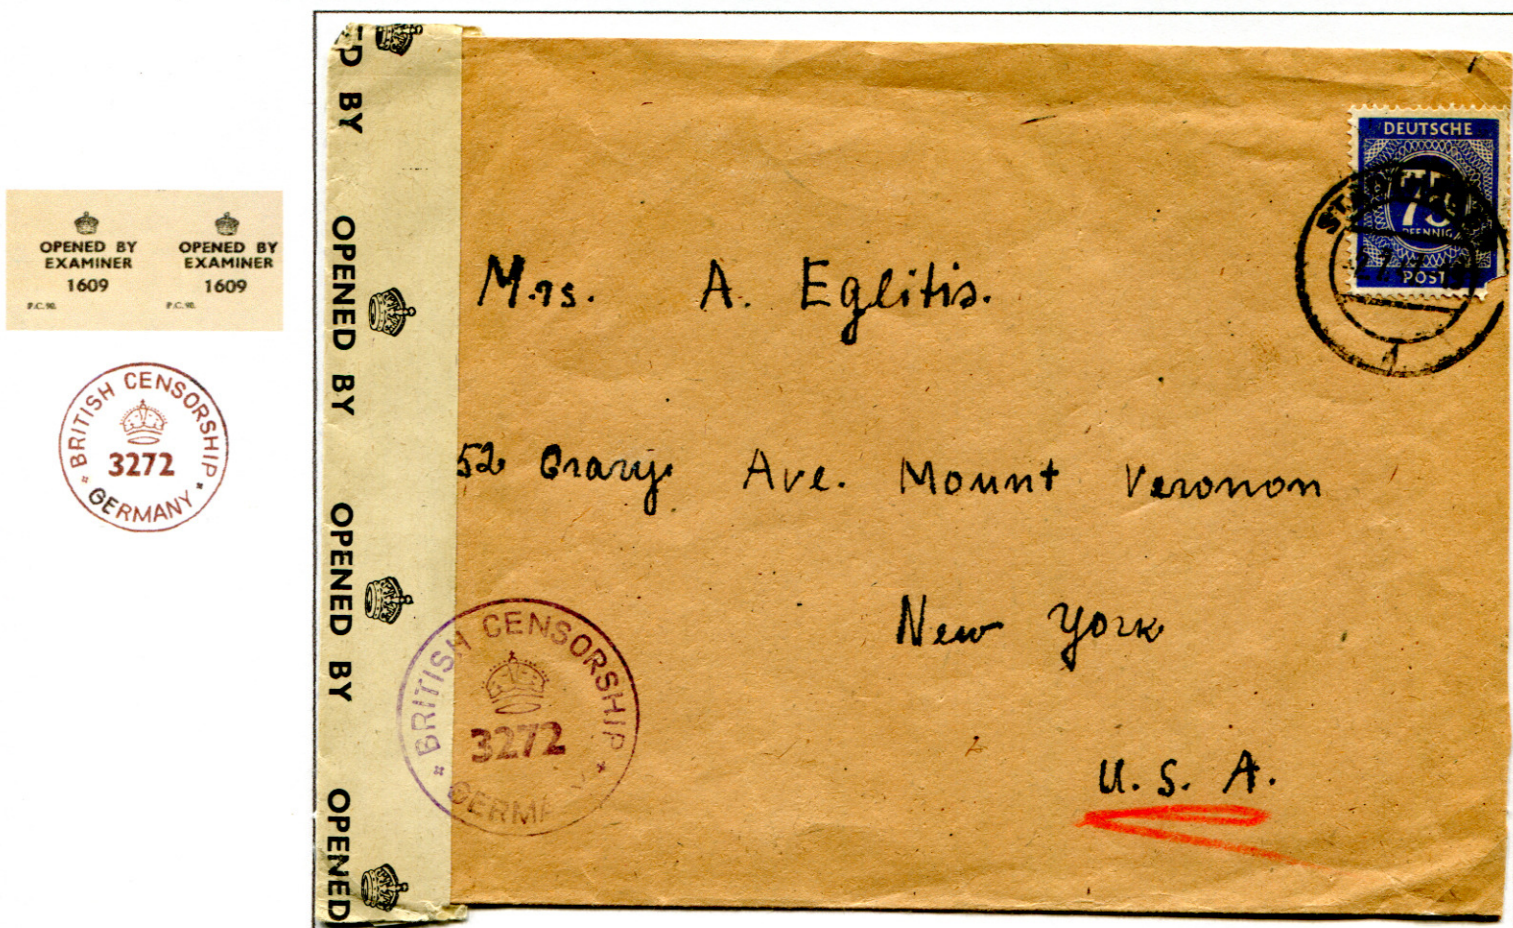 OPENED BY OPENED BY
EXAMINER EXAMINER
1609 1609
P.C.90. P.C.90.
BRITISH CENSORSHIP
3272
GERMANY
D BY
OPENED BY
OPENED BY
OPENED
DEUTSCHE
75
PFENNIG
POST
Mrs. A. Eglitis.
52 Crary Ave. Mount Veronon
New York
U. S. A.
BRITISH CENSORSHIP
3272
GERMA